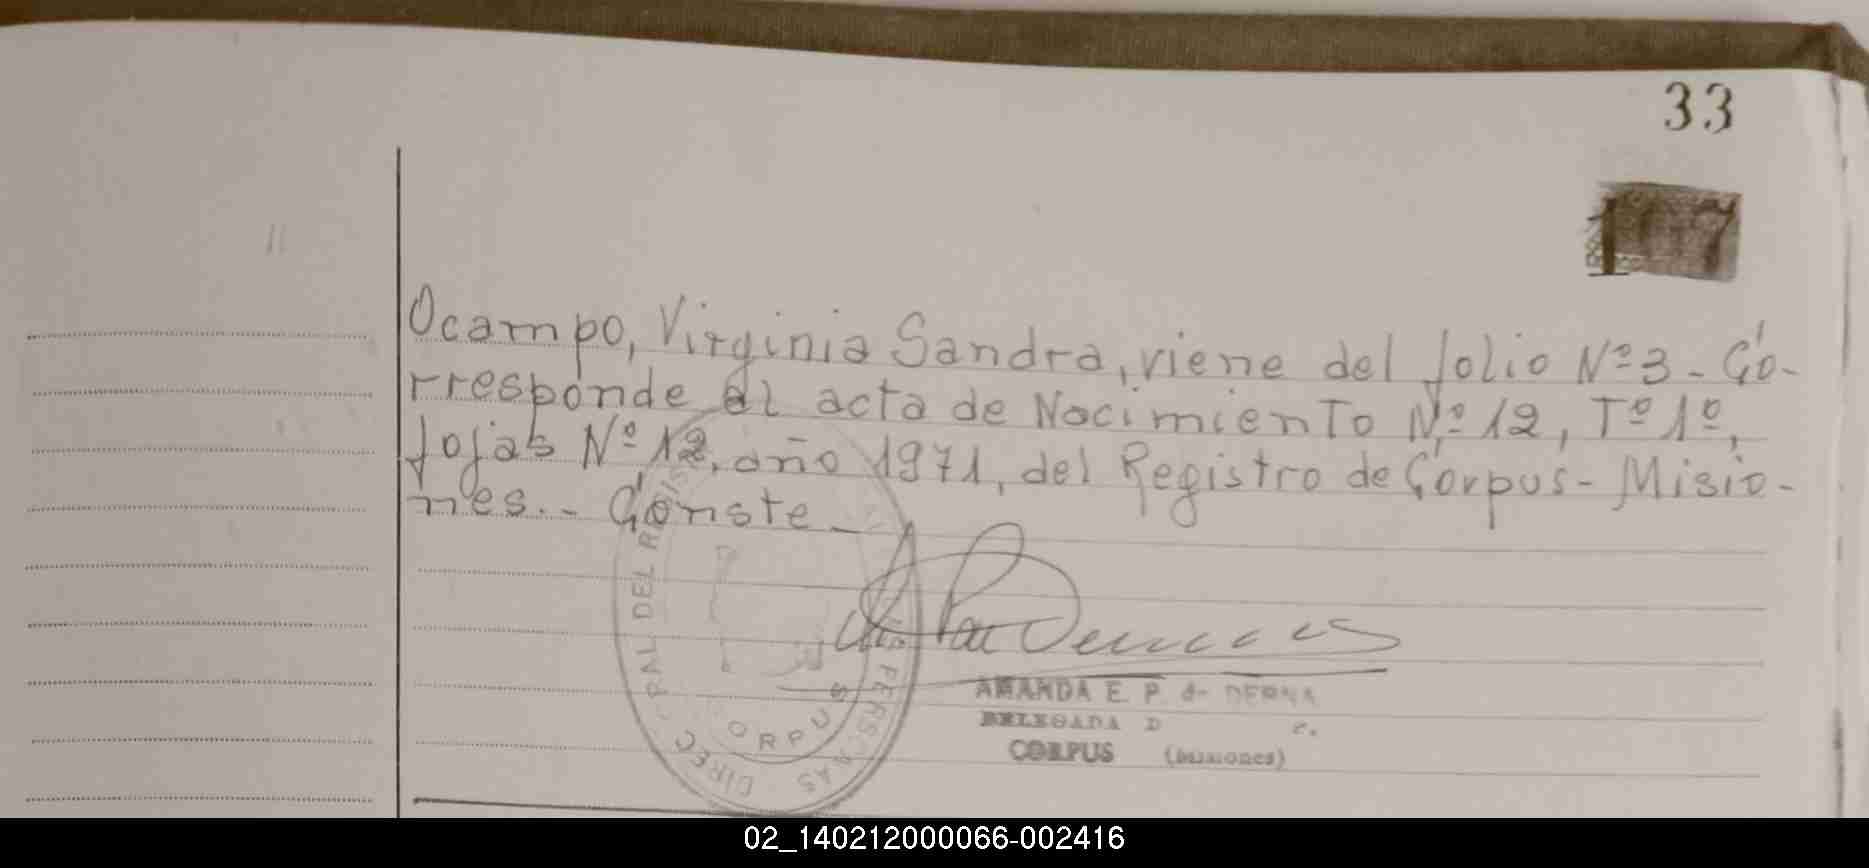 33
Ocampo, Virginia Sandra, viene del folio Nº 3 - Co-
rresponde al acta de Nacimiento Nº 12, Tº 1º,
fojas Nº 12, año 1971, del Registro de Corpus - Misio-
nes. - Conste -
AMANDA E. P. de DERNA
DELEGADA
CORPUS (MISIONES)
DEL
PERSONAS
CORPUS
02_140212000066-002416